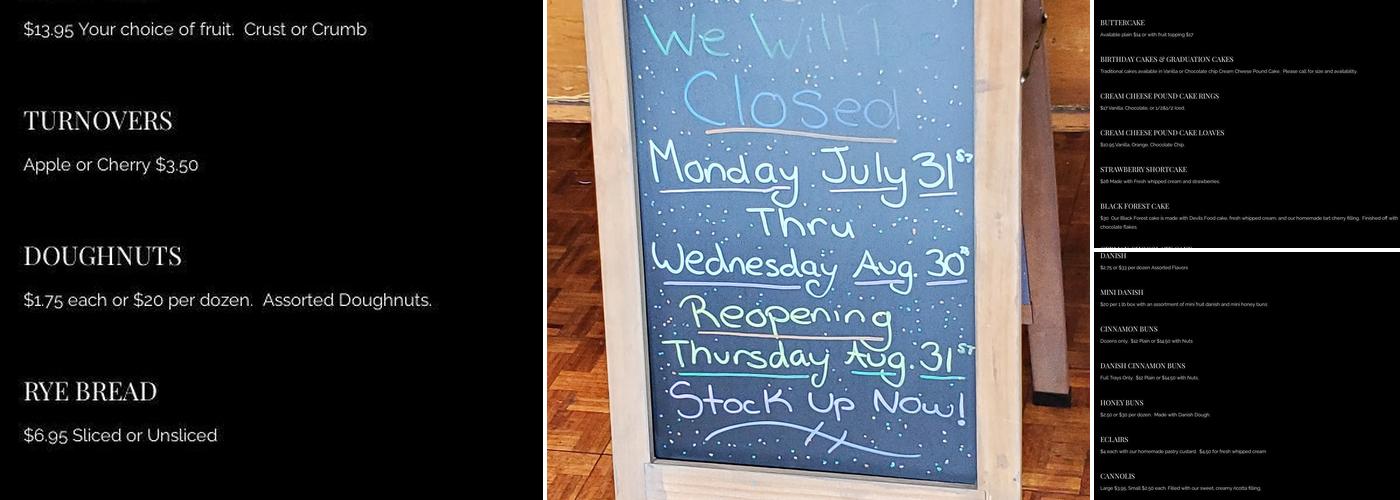 $13.95 Your choice of fruit. Crust or Crumb
TURNOVERS
Apple or Cherry $3.50
DOUGHNUTS
$1.75 each or $20 per dozen. Assorted Doughnuts.
RYE BREAD
$6.95 Sliced or Unsliced
We Will
Closed
Monday July 31st
Thru
Wednesday Aug. 30th
Reopening
Thursday Aug. 31st
Stock Up Now!
BUTTERCAKE
Available plain $14 or with fruit topping $17
BIRTHDAY CAKES & GRADUATION CAKES
Traditional cakes available in Vanilla or Chocolate chip Cream Cheese Pound Cake. Please call for size and availability.
CREAM CHEESE POUND CAKE RINGS
$17 Vanilla, Chocolate, or 1/2&1/2 Iced.
CREAM CHEESE POUND CAKE LOAVES
$10.95 Vanilla, Orange, Chocolate Chip.
STRAWBERRY SHORTCAKE
$28 Made with Fresh whipped cream and strawberries.
BLACK FOREST CAKE
Our Black Forest cake is made with Devils Food cake, fresh whipped cream, and our homemade tart cherry filling. Finished off with
chocolate flakes.
DANISH
$2.75 or $33 per dozen Assorted Flavors
MINI DANISH
$20 per 1 lb box with an assortment of mini fruit danish and mini honey buns
CINNAMON BUNS
Dozens only. $12 Plain or $14.50 with Nuts
DANISH CINNAMON BUNS
Full Trays Only. $12 Plain or $14.50 with Nuts.
HONEY BUNS
$2.50 or $30 per dozen. Made with Danish Dough.
ECLAIRS
$4 each with our homemade pastry custard. $4.50 for fresh whipped cream
CANNOLIS
Large $3.95, Small $2.50 each. Filled with our sweet, creamy ricotta filling.